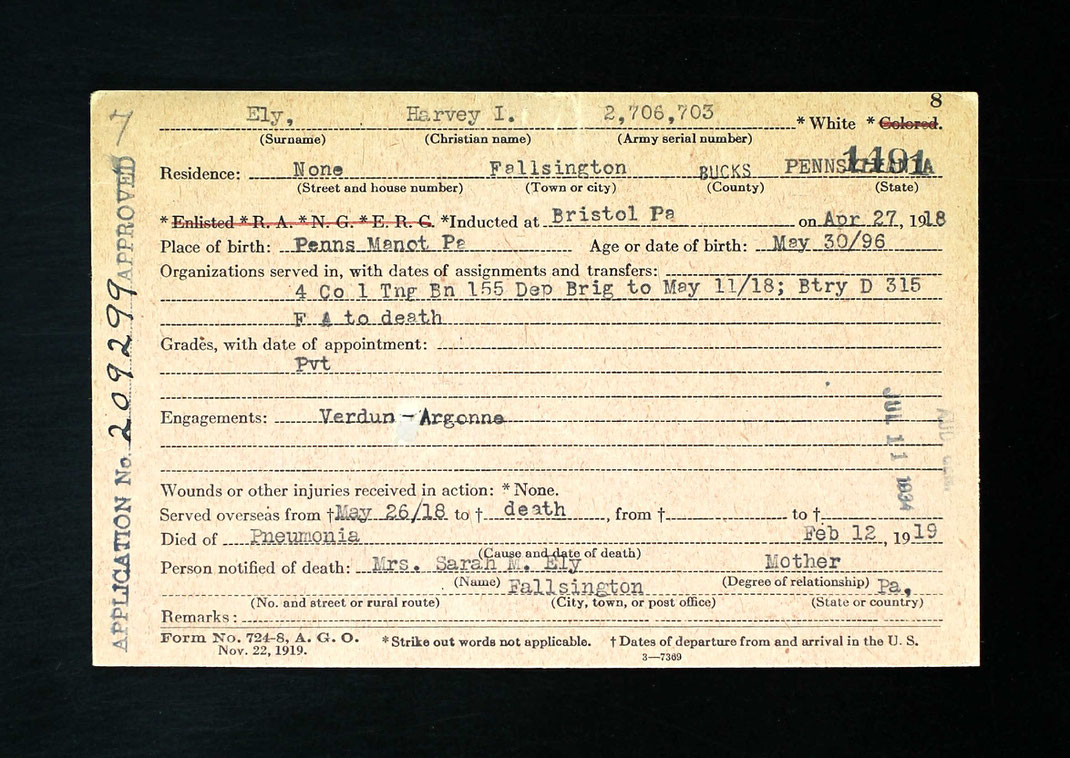 8
7
Ely, Harvey I. 2,706,703 * White * Colored.
(Surname) (Christian name) (Army serial number)
1491
Residence: None Fallsington BUCKS PENNSYLVANIA
(Street and house number) (Town or city) (County) (State)
* Enlisted * R. A. * N. G. * E. R. C. *Inducted at Bristol Pa on Apr 27, 1918
Place of birth: Penns Manot Pa Age or date of birth: May 30/96
Organizations served in, with dates of assignments and transfers:
4 Co 1 Tng Bn 155 Dep Brig to May 11/18; Btry D 315
F A to death
Grades, with date of appointment:
Pvt
Engagements: Verdun - Argonne
JUL 11 1934
Wounds or other injuries received in action: * None.
Served overseas from † May 26/18 to † death, from † to †
Died of Pneumonia Feb 12, 1919
(Cause and date of death)
Person notified of death: Mrs. Sarah M. Ely Mother
(Name) (Degree of relationship)
Fallsington Pa,
(No. and street or rural route) (City, town, or post office) (State or country)
Remarks:
Form No. 724-8, A. G. O. *Strike out words not applicable. † Dates of departure from and arrival in the U. S.
Nov. 22, 1919. 3—7369
APPLICATION No. 209299 APPROVED